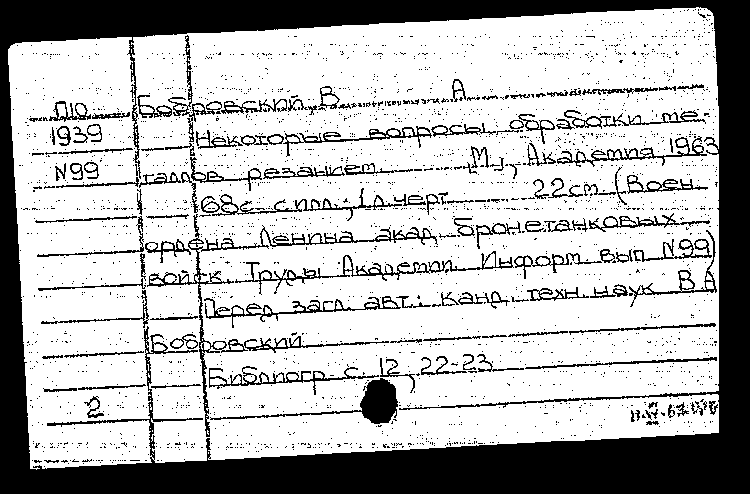 П10 Бобровский, В. А
1939 Некоторые вопросы обработки ме-
N99 таллов резанием. [М.], Академия, 1963
68с. с илл.; 1 л. черт. 22cm. (Воен.
ордена Ленина акад. бронетанковых
войск. Труды Академии. Информ. вып. N99)
Перед загл. авт.: канд. техн. наук В А
Бобровский
Библиогр. с. 12, 22-23
2